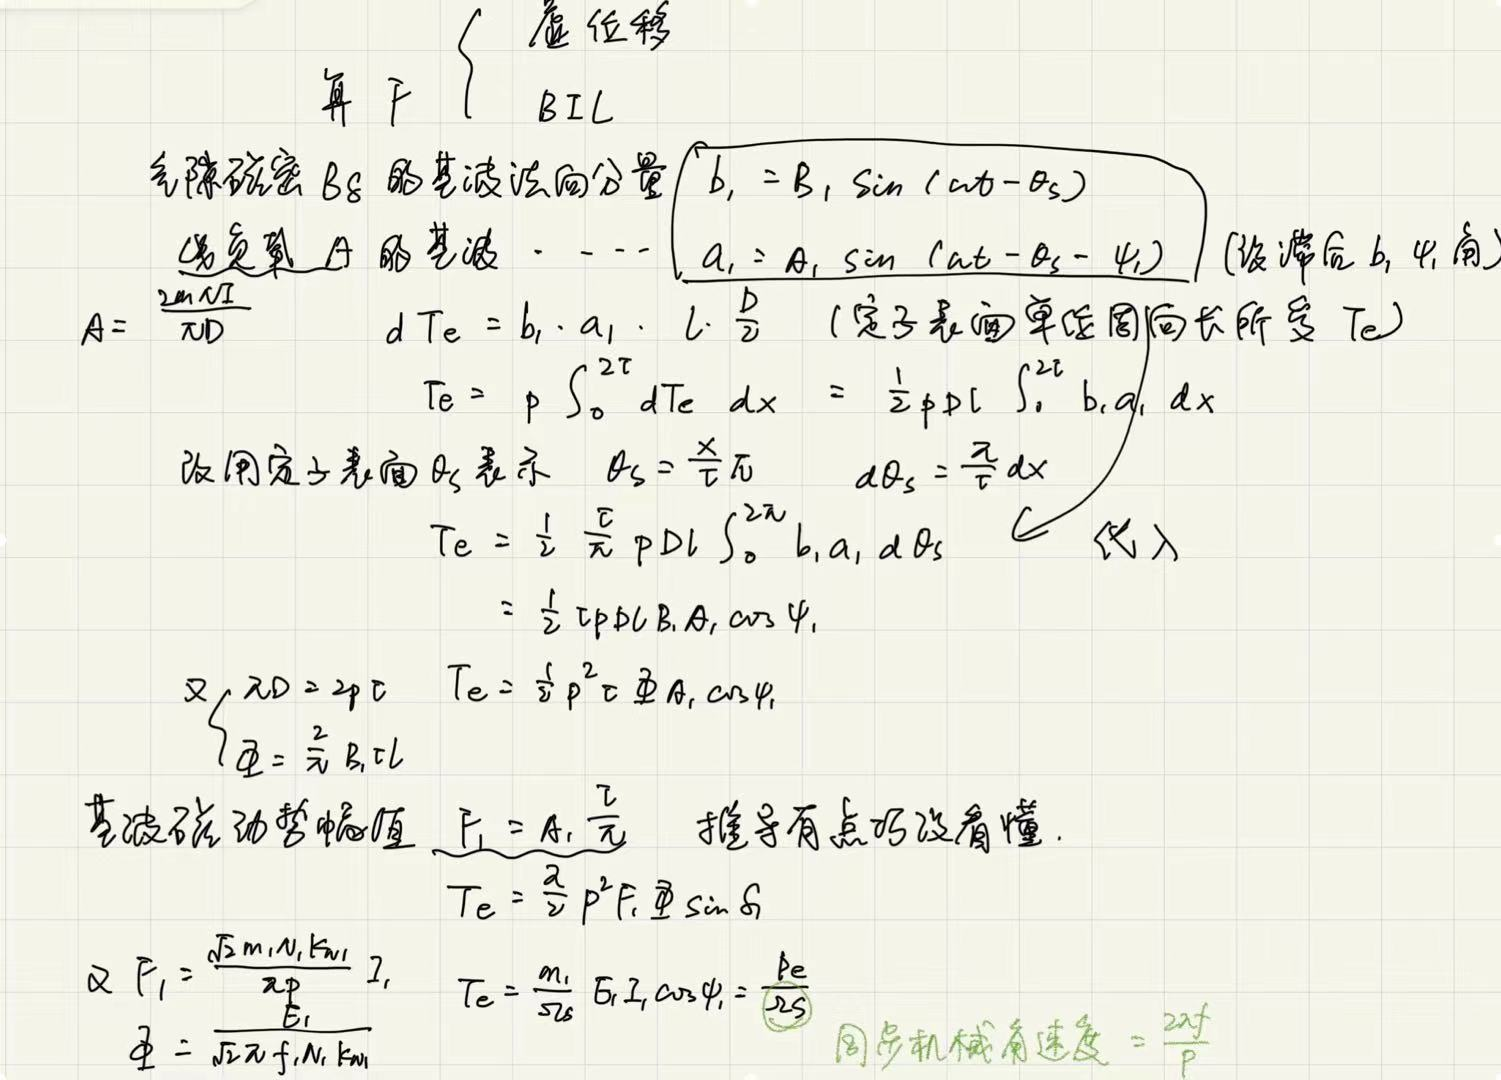 算 F { 虚位移
BIL
气隙磁密 Bδ 的基波法向分量 b₁ = B₁ sin (ωt - θs)
线负载 A 的基波 · - - - - a₁ = A₁ sin (ωt - θs - ψ₁) (设滞后 b₁ ψ₁ 角)
A = 2mNI/πD dTe = b₁ · a₁ · l · D/2 (定子表面单位周向长所受 Te)
Te = p ∫₀^2τ dTe dx = 1/2 pDl ∫₀^2τ b₁a₁ dx
改用定子表面 θs 表示 θs = x/τ π dθs = π/τ dx
Te = 1/2 τ/π pDl ∫₀^2π b₁a₁ dθs 代入
= 1/2 τpDlB₁A₁ cosψ₁
又 { πD = 2pτ Te = 1/2 p²τΦA₁ cosψ₁
Φ = 2/π B₁τl
基波磁动势幅值 F₁ = A₁ τ/π 推导有点巧没看懂.
Te = π/2 p²F₁Φ sin δ₁
又 F₁ = √2m₁N₁kN₁/πp I₁ Te = m₁/Ωs E₁I₁ cosψ₁ = Pe/Ωs
Φ = E₁/√2πf₁N₁kN₁ 同步机械角速度 = 2πf/p